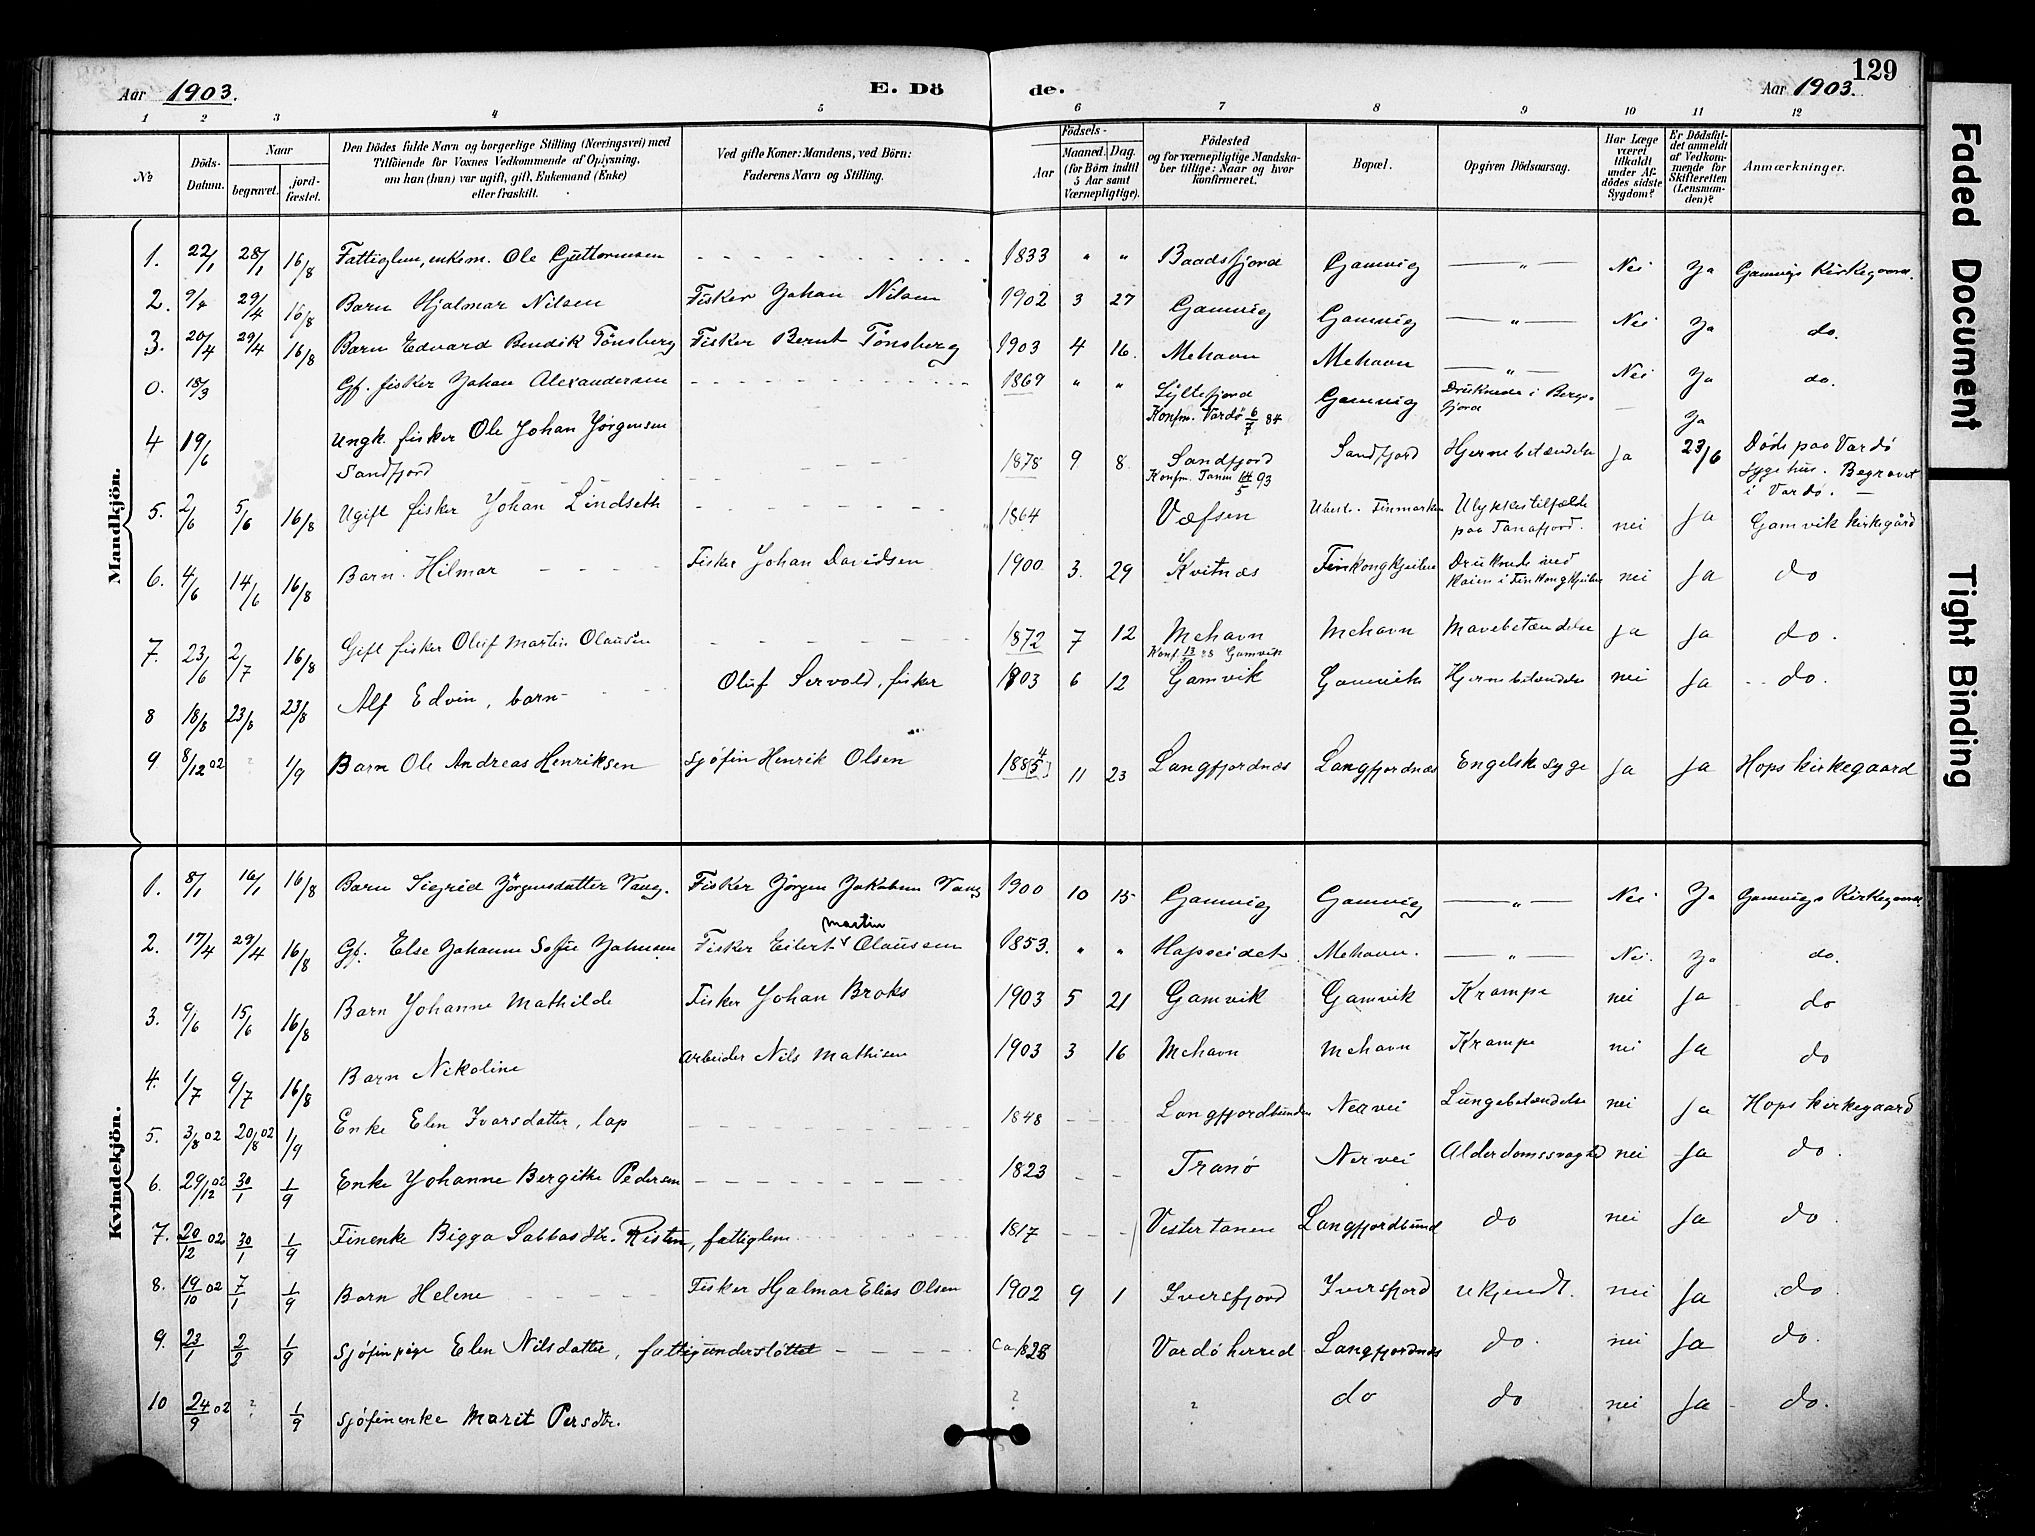 129
Aar 1903. E. Dö de. Aar 1903.
1 2 3 4 5 6 7 8 9 10 11 12
No
Döds-Datum.
Naar
begravet.
jord-fæstet.
Den Dödes fulde Navn og borgerlige Stilling (Næringsvei) med
Tilföiende for Voxnes Vedkommende af Oplysning,
om han (hun) var ugift, gift, Enkemand (Enke)
eller fraskilt.
Ved gifte Koner: Mandens, ved Börn:
Faderens Navn og Stilling.
Födsels-
Aar
Maaned. Dag.
(for Börn indtil
5 Aar samt
Værnepligtige).
Födested
og for værnepligtige Mandska-
ber tillige: Naar og hvor
konfirmeret.
Bopæl.
Opgiven Dödsaarsag.
Har Læge
været
tilkaldt
under Af-
dödes sidste
Sygdom?
Er Dödsfal-
det anmeldt
af Vedkom-
mende for
Skifteretten
(Lensman-
den)?
Anmærkninger.
Mandkjön.
1. 22/1 28/1 16/8 Fattiglem, enkem. Ole Guttormsen - - - 1833 " " Baadsfjord Gamvig — " — Nei Ja Gamvigs Kirkegaard.
2. 9/4 29/4 16/8 Barn Hjalmar Nilsen Fisker Johan Nilsen 1902 3 27 Gamvig Gamvig — " — Nei Ja do.
3. 20/4 29/4 16/8 Barn Edvard Bendik Tönsberg Fisker Bernt Tönsberg 1903 4 16. Mehavn Mehavn — " — Nei Ja do.
0. 18/3 Gf. fisker Johan Alexandersen - - - 1869 " " Syltefjord Gamvig Druknede i Bergs-
fjord — Ja
Konfm. Vardö 6/7 84
4 19/6 Ungk. fisker Ole Johan Jörgensen
Sandfjord - - - 1878 9 8. Sandfjord Sandfjord Hjernebetændelse Ja 23/6 Död paa Vardö
Sygehus. Begravet
i Vardö. —
Konfm. Tanen 14/5 93
5. 2/6 5/6 16/8 Ugift fisker Johan Lindseth - - - 1864 Vefsen Ubest. Finmarken Ulykkestilfælde
paa Tanafjord. nei Ja Gamvik kirkegård
6. 4/6 14/6 16/8 Barn. Hilmar - - - Fisker Johan Davidsen 1900 3. 29 Kvitnæs Finkongkjeilen Druknede ved
kaien i Finkongkjeilen nei Ja do
7. 23/6 2/7 16/8 Gift fisker Oluf Martin Olausen - - - 1872 7 12 Mehavn Mehavn Mavebetændelse Ja Ja do.
Konf. 13/ 88 Gamvik
8 18/8 23/8 23/8 Alf Edvin, barn - - - Oluf Servold, fisker 1903 6 12 Gamvik Gamvik Hjernebetændelse nei Ja do.
9 8/12 02 ? 1/9 Barn Ole Andreas Henriksen Sjöfin Henrik Olsen 11 23 Langfjordnæs Langfjordnæs Engelsk syge Ja Ja Hops kirkegaard
Kvindekjön.
1. 8/1 16/1 16/8 Barn Sigrid Jörgensdatter Vang. Fisker Jörgen Jakobsen Vang 1900 10 15 Gamvig Gamvig — " — Nei Ja Gamvigs Kirkegaard.
2. 17/4 29/4 16/8 Gf. Else Johanne Sofie Johnsen Fisker Eilert Martin Olaussen 1853. " " Hopseidet Mehavn. — " — Nei. Ja do.
3. 9/6 15/6 16/8 Barn Johanne Mathilde Fisker Johan Broks 1903 5 21 Gamvik Gamvik Krampe nei Ja do
4. 1/7 9/7 16/8 Barn Nikoline Arbeider Nils Mathisen 1903 3 16 Mehavn Mehavn Krampe nei Ja do
5. 3/8 02 20/8 02 1/9 Enke Elen Ivarsdatter, lap - - - 1848 - - - Langfjordbunden Nervei Lungebetændelse nei Ja Hops kirkegaard
6. 29/12 02 30/1 1/9 Enke Johanne Bergitte Pedersen - - - 1823 - - Tranö Nervei Alderdomssvaghed nei Ja do.
7. 20/12 02 30/1 1/9 Finenke Bigga Sabbasdtr. Risten, fattiglem - - - 1817 - - - Vestertanen Langfjordbund do nei Ja do.
8. 19/10 02 7/1 1/9 Barn Helene - - - Fisker Hjalmar Elias Olsen 1902 9 1 Iversfjord Iversfjord ukjendt. nei Ja do.
9. 23/1 2/2 1/9 Sjöfinpige Elen Nilsdatter, fattigunderstöttet - - - ca 1828 Vardö herred Langfjordnæs do. nei Ja do.
10 24/9 02 ? 1/9 Sjöfinenke Marit Persdtr. ? ? do do nei Ja do.
Faded Document
Tight Binding